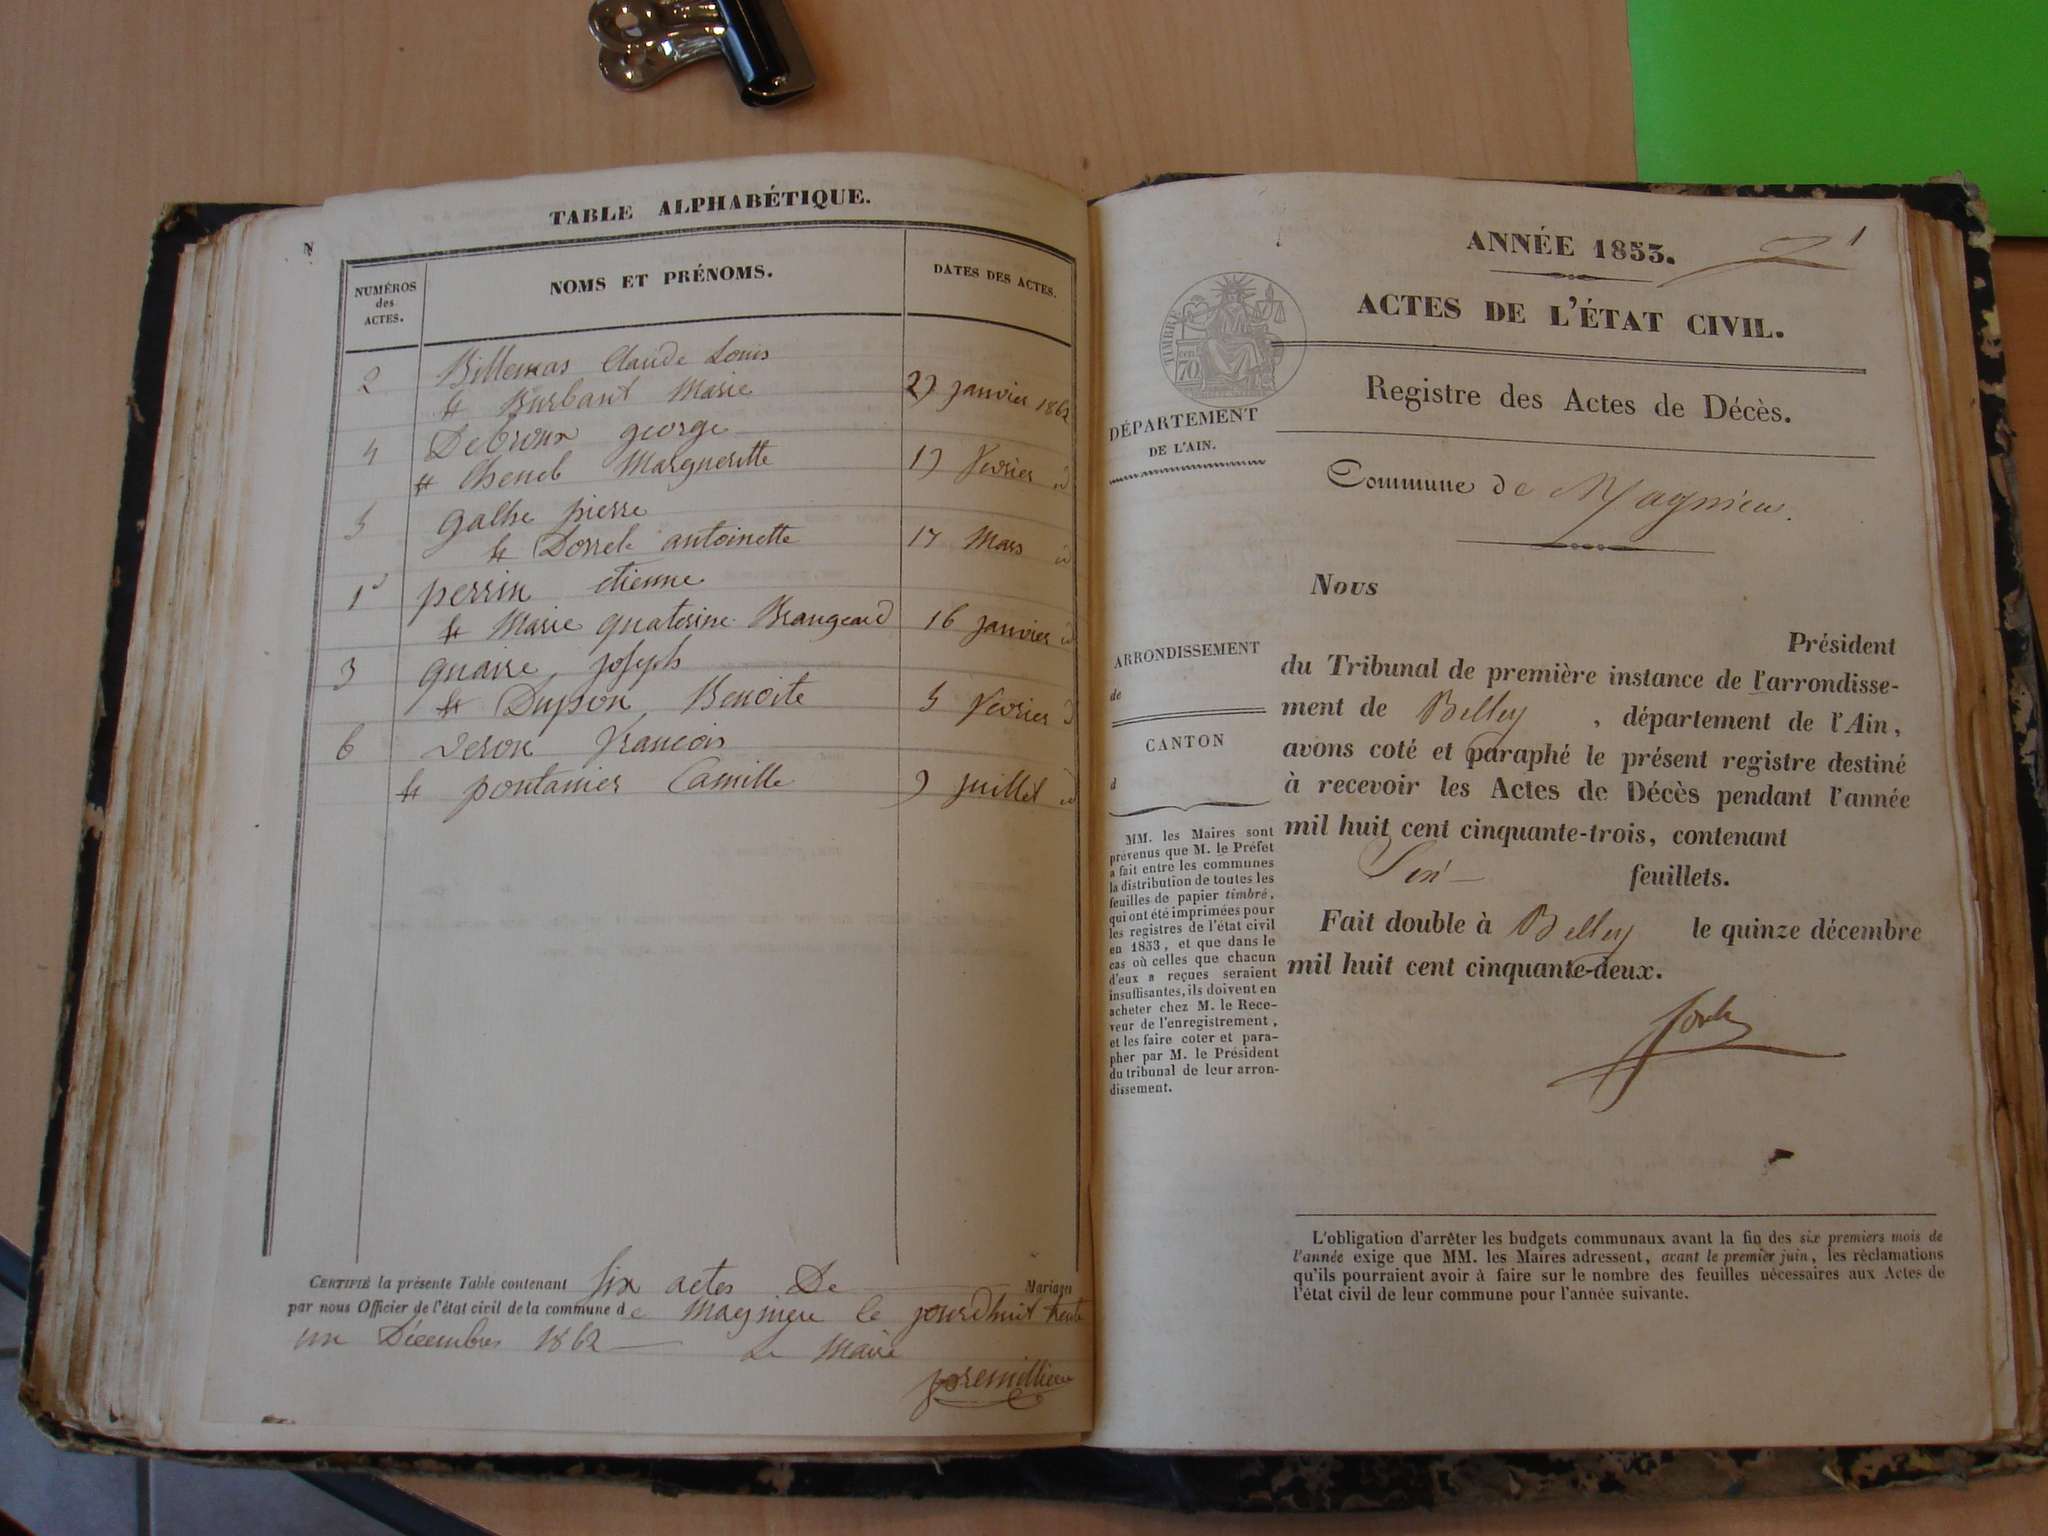 TABLE ALPHABÉTIQUE.
N
NUMÉROS des ACTES.
NOMS ET PRÉNOMS.
DATES DES ACTES.
2 Billemas Claude Louis
& Burbant Marie 27 janvier 1862
4 Debroux george
& Margueritte 17 fevrier id
5 galhe pierre
& antoinette 17 Mars id
1er perrin etienne
& Marie quaterine Brangeard 16 janvier id
3 quaire joseph
& Dupson Benoite 5 fevrier id
6 veron francois
& pontanier Camille 7 juillet id
CERTIFIÉ la présente Table contenant six actes De Mariages
par nous Officier de l'état civil de la commune de Magnieu le jourdhuit trente
un Décembres 1862 Le Maire
premillieu
ANNÉE 1853.
1
ACTES DE L'ÉTAT CIVIL.
TIMBRE
70 cen
Registre des Actes de Décès.
DÉPARTEMENT
DE L'AIN.
Commune de Magnieu.
Nous
Président
du Tribunal de première instance de l'arrondisse-
ment de Belley , département de l'Ain,
avons coté et paraphé le présent registre destiné
à recevoir les Actes de Décès pendant l'année
mil huit cent cinquante-trois, contenant
Six feuillets.
Fait double à Belley le quinze décembre
mil huit cent cinquante-deux.
ARRONDISSEMENT
de
CANTON
d
MM. les Maires sont
prévenus que M. le Préfet
a fait entre les communes
la distribution de toutes les
feuilles de papier timbré,
qui ont été imprimées pour
les registres de l'état civil
en 1853, et que dans le
cas où celles que chacun
d'eux a reçues seraient
insuffisantes, ils doivent en
acheter chez M. le Rece-
veur de l'enregistrement,
et les faire coter et para-
pher par M. le Président
du tribunal de leur arron-
dissement.
L'obligation d'arrêter les budgets communaux avant la fin des six premiers mois de
l'année exige que MM. les Maires adressent, avant le premier juin, les réclamations
qu'ils pourraient avoir à faire sur le nombre des feuilles nécessaires aux Actes de
l'état civil de leur commune pour l'année suivante.